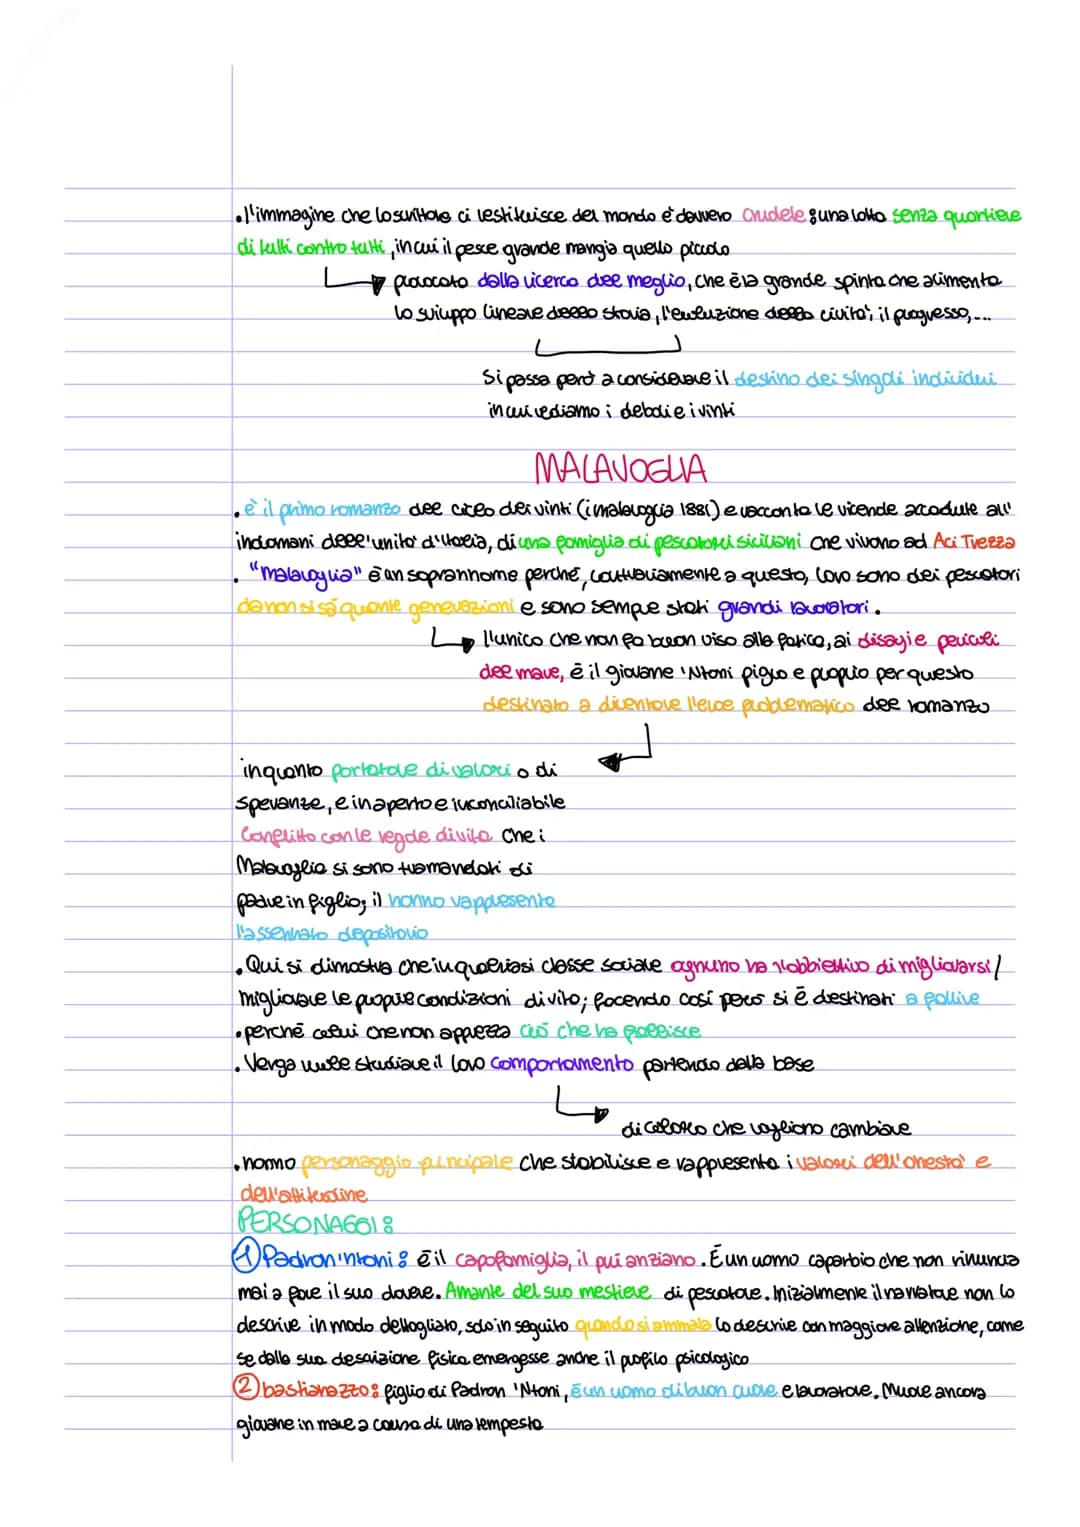 .l'immagine che lo scrittore ci restituisce del mondo è davvero crudele: una lotta senza quartiere
di tutti contro tutti, in cui il pesce grande mangia quello piccolo
provocato dalla ricerca del meglio, che è la grande spinta che alimenta
lo sviluppo lineare della storia, l'evoluzione della civiltà, il progresso,...
Si passa però a considerare il destino dei singoli individui
in cui vediamo i deboli e i vinti
MALAVOGLIA
. è il primo romanzo del ciclo dei vinti (i malavoglia 1881) e racconta le vicende accadute all'
indomani dell'unità d'Italia, di una famiglia di pescatori siciliani che vivono ad Aci Trezza
. "Malavoglia" è un soprannome perché, contrariamente a questo, loro sono dei pescatori
da non si sà quante generazioni e sono sempre stati grandi lavoratori.
l'unico che non fa buon viso alla fatica, ai disagi e pericoli
del mare, è il giovane 'Ntoni pigro e proprio per questo
destinato a diventare l'eroe problematico del romanzo
in quanto portatore di valori o di
speranze, e in aperto e inconciliabile
conflitto con le regole di vita che i
Malavoglia si sono tramandati di
padre in figlio; il nonno rappresenta
l'assennato depositario
. Qui si dimostra che in qualsiasi classe sociale ognuno ha l'obbiettivo di migliorarsi/
migliorare le proprie condizioni di vita; facendo così però si è destinati a fallire
. perché colui che non apprezza ciò che ha fallisce
. Verga vuole studiare il loro comportamento partendo dalla base
di coloro che vogliono cambiare
. nonno personaggio principale che stabilisce e rappresenta i valori dell'onestà e
dell'attitudine
PERSONAGGI:
1 Padron 'ntoni: è il capofamiglia, il pui anziano. È un uomo caparbio che non rinuncia
mai a fare il suo dovere. Amante del suo mestiere di pescatore. Inizialmente il narratore non lo
descrive in modo dettagliato, solo in seguito quando si ammala lo descrive con maggiore attenzione, come
se dalla sua descrizione fisica emergesse anche il profilo psicologico
2 bastianazzo: figlio di Padron 'Ntoni, è un uomo di buon cuore e lavoratore. Muore ancora
giovane in mare a causa di una tempesta